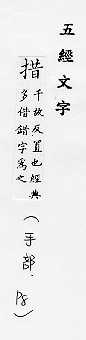 五經文字
措
千故反置也經典
多借錯字爲之
(手部. P8)